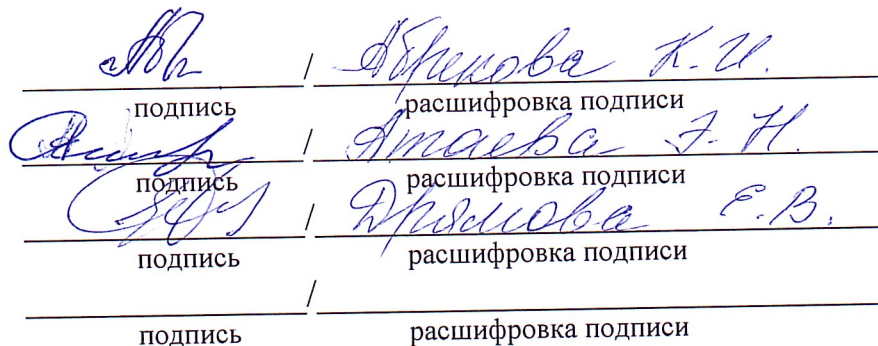 / Абрекова К.И.
подпись расшифровка подписи
/ Атаева Э.Н.
подпись расшифровка подписи
/ Дрямова Е.В.
подпись расшифровка подписи
/
подпись расшифровка подписи